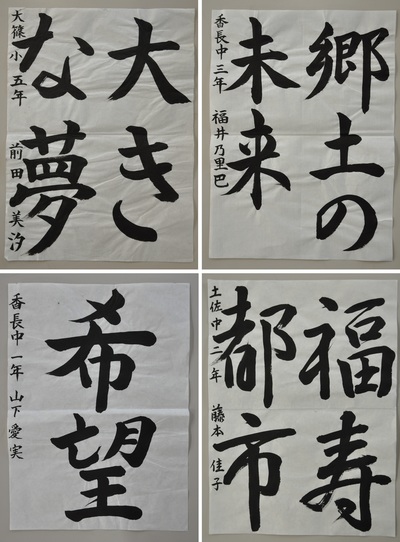 大き
な夢
大篠小 五年 前田 美汐
郷土の
未来
香長中三年 福井乃里巴
希望
香長中 一年 山下 愛実
福寿
都市
土佐中 二年 藤本 佳子